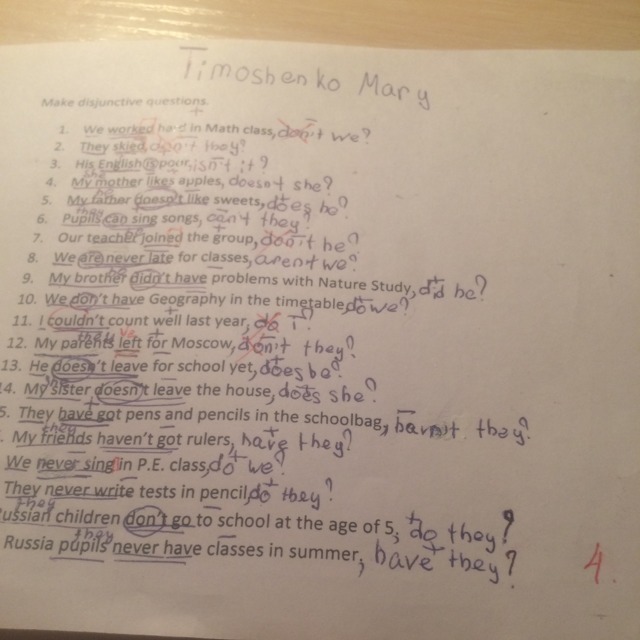 Timoshenko Mary
Make disjunctive questions.
1. We worked hard in Math class, don't we?
2. They skied, don't they?
3. His English is pour, isn't it?
4. My mother likes apples, doesn't she?
5. My father doesn't like sweets, does he?
6. Pupils can sing songs, can't they?
7. Our teacher joined the group, don't he?
8. We are never late for classes, aren't we?
9. My brother didn't have problems with Nature Study, did he?
10. We don't have Geography in the timetable, do we?
11. I couldn't count well last year, do I?
12. My parents left for Moscow, don't they?
13. He doesn't leave for school yet, does he?
14. My sister doesn't leave the house, does she?
5. They have got pens and pencils in the schoolbag, haven't they?
. My friends haven't got rulers, have they?
We never sing in P.E. class, do we?
They never write tests in pencil, do they?
ussian children don't go to school at the age of 5, do they?
Russia pupils never have classes in summer, have they?
4.